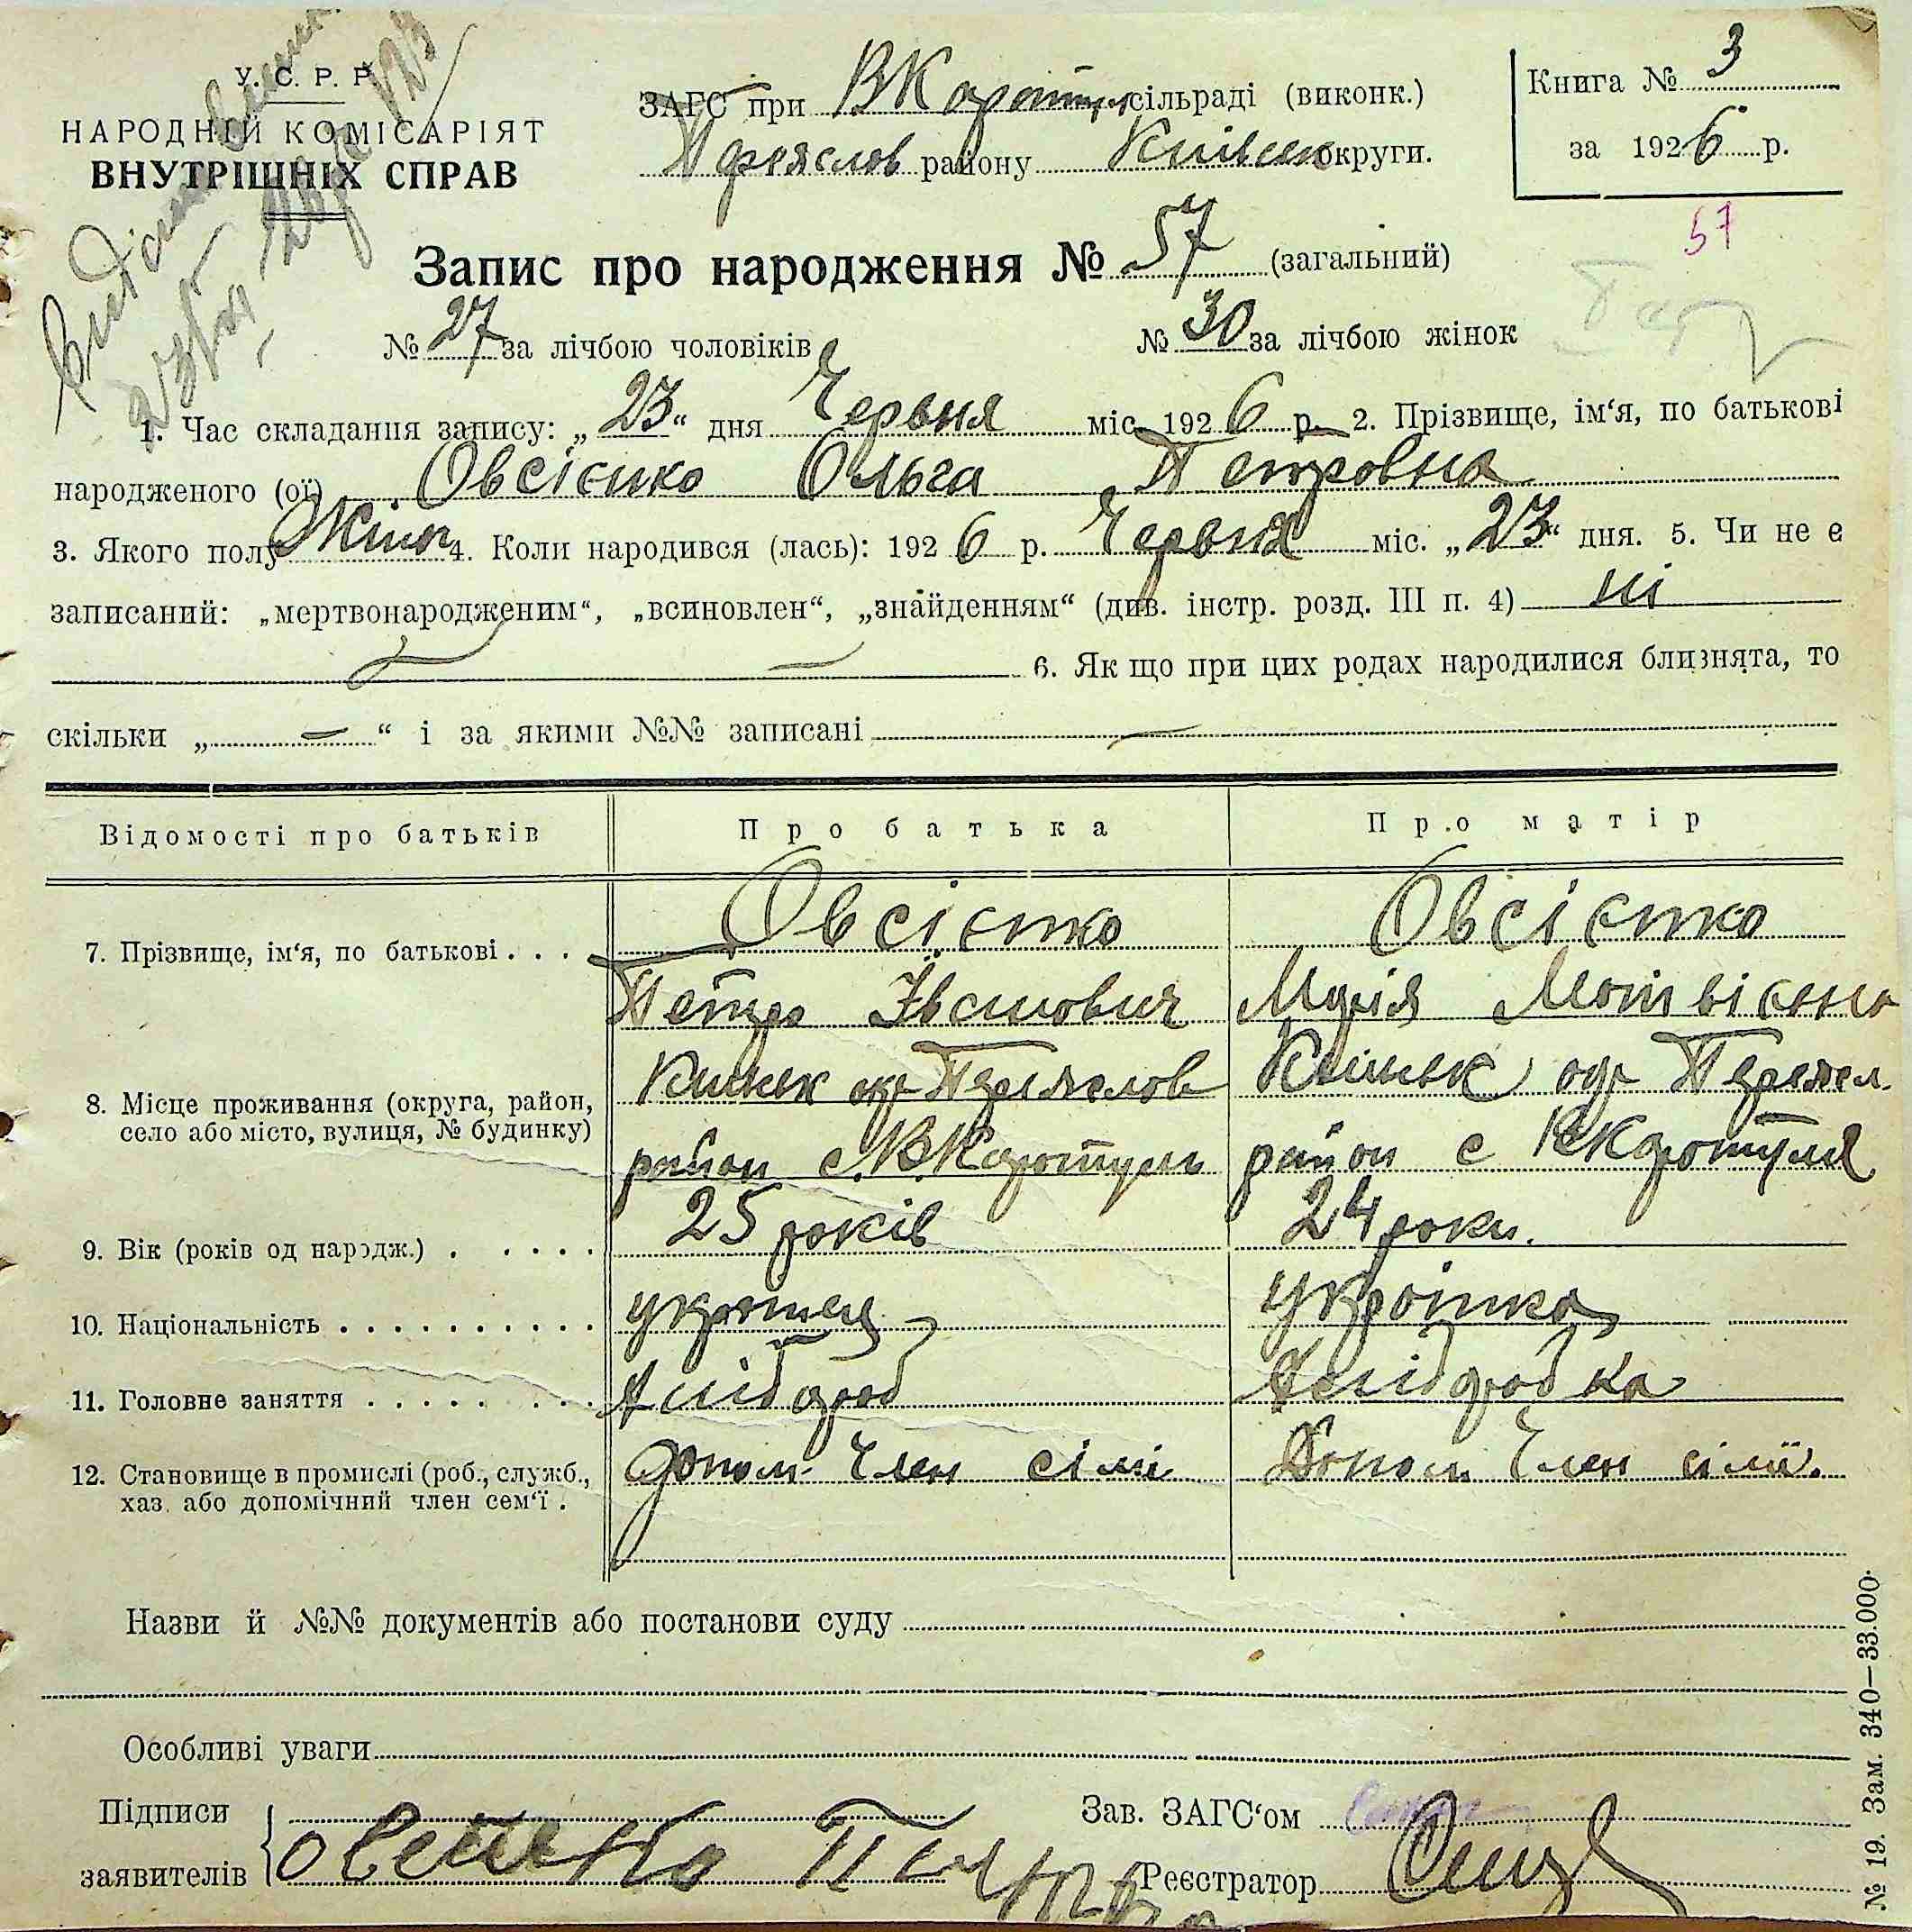 У. С. Р. Р.
НАРОДНІЙ КОМІСАРІЯТ
ВНУТРІШНІХ СПРАВ
ЗАГС при ВКаратул сільраді (виконк.)
Переяслов району Київськ округи.
Книга № 3
за 1926 р.
57
Запис про народження № 57 (загальний)
№ 27 за лічбою чоловіків № 30 за лічбою жінок
1. Час складання запису: „23“ дня Червня міс. 1926 р. 2. Прізвище, ім‘я, по батькові
народженого (ої) Овсієнко Ольга Петровна
3. Якого полу Жіноч 4. Коли народився (лась): 1926 р. Червня міс. „23“ дня. 5. Чи не є
записаний: „мертвонародженим“, „всиновлен“, „знайденням“ (див. інстр. розд. III п. 4) ні
6. Як що при цих родах народилися близнята, то
скільки „ — “ і за якими №№ записані —
Відомості про батьків Про батька Про матір
7. Прізвище, ім‘я, по батькові . . . Овсієнко Овсієнко
Петро Іванович Марія Матвієвна
8. Місце проживання (округа, район, село або місто, вулиця, № будинку) Київськ окр Переяслов Київськ окр Переясл.
район с. ВКаратуль район с ВКаратуля
9. Вік (років од народж.) . . . . . 25 років 24 роки.
10. Національність . . . . . . . . . . українец українка
11. Головне заняття . . . . . . . . Хлібороб Хліборобка
12. Становище в промислі (роб., служб., хаз. або допомічний член сем‘ї . допом. Член сімї Допом. Член сімї.
Назви й №№ документів або постанови суду
Особливі уваги
Підписи
заявителів Овсиенко Петро
Зав. ЗАГС‘ом
Реєстратор
№ 19. Зам. 340—33.000.